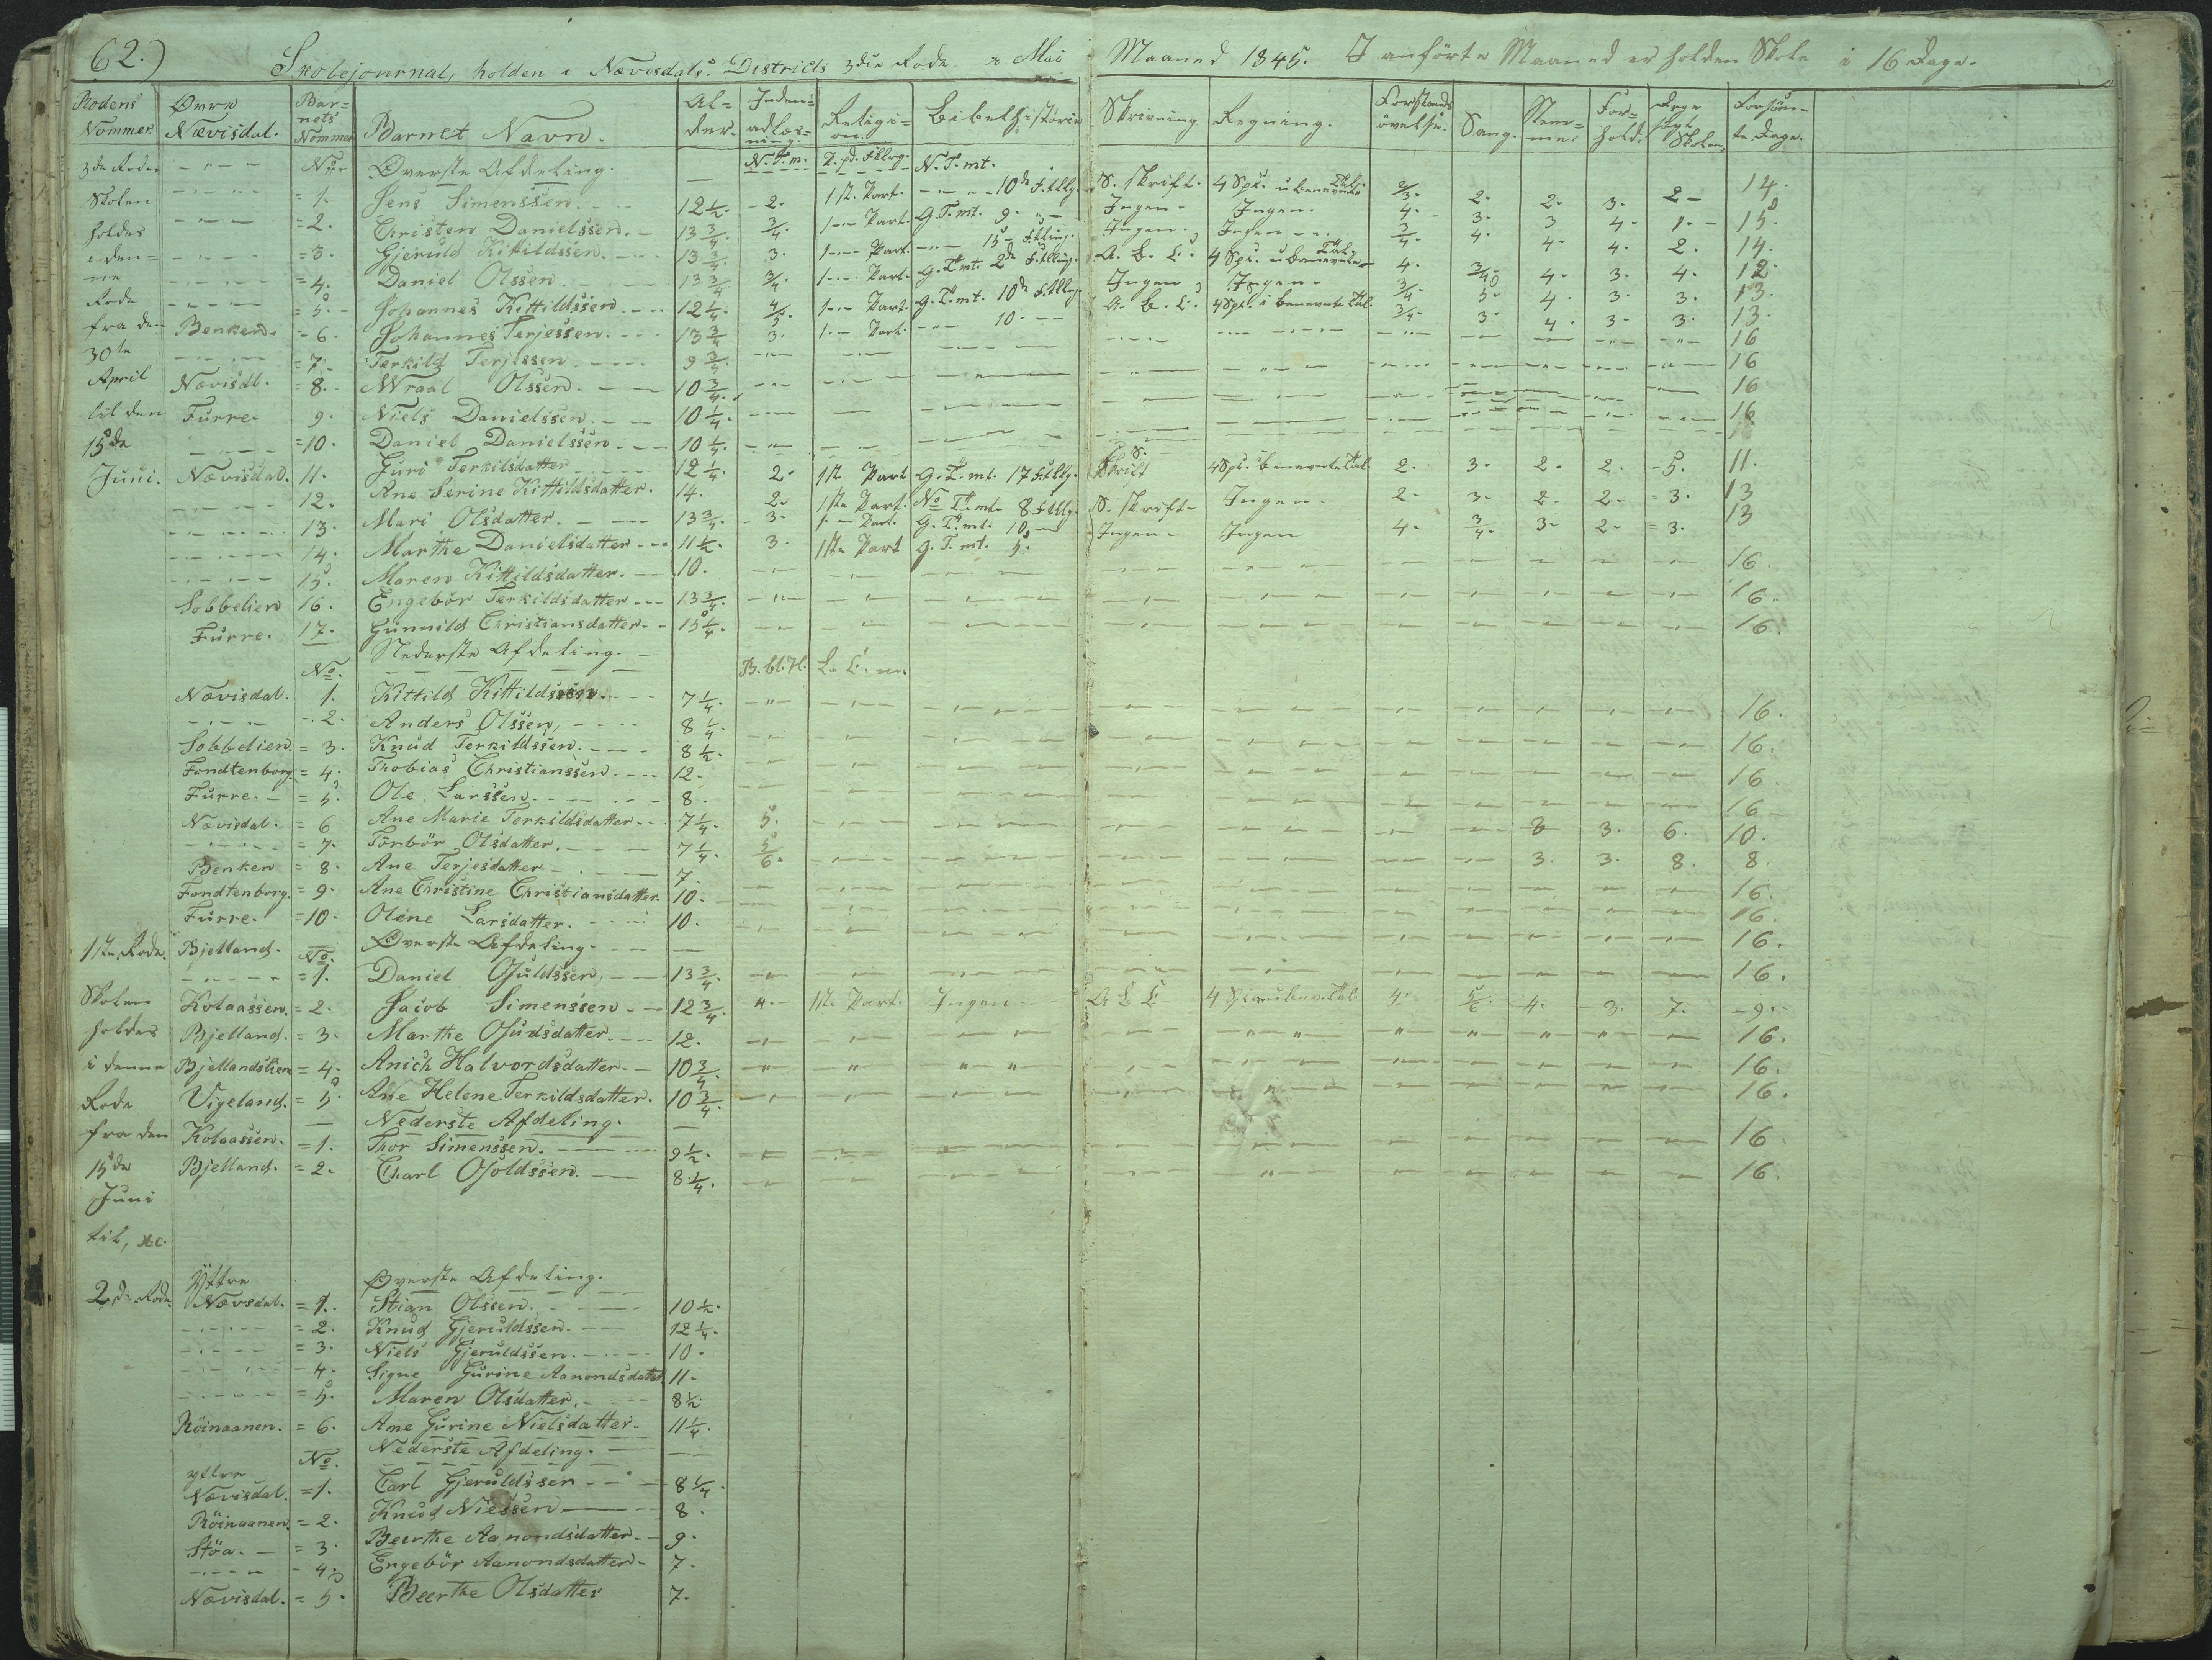 62.)
Skolejournal, holden i Nævisdals Districts 3die Rode i Mai Maaned 1845. I anførte Maaned er holden Skole i 16 Dage.
Rodens Nommer. Øvre Nævisdal. Barnets Nommer Barnet Navn. Alder. Indenadlæsning. Religion. Bibelhistorie Skrivning. Regning. Forstandsövelse. Sang. Stemme. Forhold. Dage søgt Skolen. Forsömte Dage.
3die Rode No. Øverste Afdeling. N. T. m. N. T. mt.
Skolen = 1. Jens Simenssen. 12 1/2. 2. 1ste Part. 10de S. Skrift. 4 Sp. 2/3. 2. 2. 3. 2 14.
holdes = 2. Christen Danielssen. 13 3/4. 3/4. 1 Part. G. T. mt. 9. Ingen. Ingen. 4. 3. 3 4. 1. 15.
i denne = 3. Gjeruld Kittildssen. 13 3/4. 3. 1 Part. 15 Ingen. Ingen 3/4. 4. 4. 4. 2. 14.
= 4. Daniel Olssen. 13 3/4 3/4. 1 Part. G. T. mt. 2de A. B. C. 4 Sp. 4. 3/4. 4. 3. 4. 12.
Rode = 5. Johannes Kittildssen. 12 1/4. 4/5. 1 Part. G. T. mt. 10de Ingen Ingen 3/4 5. 4. 3. 3. 13.
fra den Benken. = 6. Johannes Terjessen. 13 3/4 3. 1 Part. 10. A. B. C. 4 Sp. i benevnte Tal. 3/4. 3. 4. 3. 3. 13.
30te = 7. Terkild Terjessen. 9 3/4. 16
April Nævisdl. = 8. Wraal Olssen. 10 3/4. 16
til den Furre. 9. Niels Danielssen. 10 1/4. 16
15de = 10. Daniel Danielssen 10 1/4. 16
Juni. Nævisdal. 11. Guri Terkilsdatter 12 1/4. 2. 1ste Part G. T. mt. 17 S. Skrift 4 Sp. i benevnte Tal. 2. 3. 2. 2. 5. 11.
12. Ane Serine Kittildsdatter. 14. 2. 1ste Part. N. T. mt. 8 S. Skrift. Ingen. 2. 3. 2. 2. = 3. 13
13. Mari Olsdatter. 13 3/4. 3. 1 Part. G. T. mt. 10 Ingen. Ingen 4. 3/4. 3. 2. = 3. 13
14. Marthe Danielsdatter 11 1/2. 3. 1ste Part G. T. mt. 5.
15. Maren Kittildsdatter. 10. 16.
Sobbelien 16. Engebör Terkildsdatter 13 3/4. 16.
Furre. 17. Gunnild Christiansdatter. 15 1/4. 16.
No. Nederste Afdeling.
Nævisdal. 1. Kittild Kittildssen. 7 1/4. 16.
2. Anders Olssen, 8 1/4 16.
Sobbelien. = 3. Knud Terkildssen. 8 1/2. 16.
Fondtenborg. = 4. Thobias Christianssen. 12. 16
Furre. = 5. Ole Larssen. 8.
Nævisdal. = 6 Ane Marie Terkildsdatter. 7 1/4. 5. 3 3. 6. 10.
= 7. Törbör Olsdatter. 7 1/4. 5/6. 3. 3. 8. 8.
Benken = 8. Ane Terjesdatter 7. 16.
Fondtenborg. = 9. Ane Christine Christiansdatter. 10. 16.
Furre. = 10. Olene Larsdatter. 10. 16.
1ste Rode. Bjelland. No. Øverste Afdeling.
= 1. Daniel Ofuldssen. 13 3/4. 16.
Skolen Kolaassen. = 2. Jacob Simenssen 12 3/4. 4. 1ste Part. Ingen A B C 4. 5/6. 4. 3. 7. 9.
holdes Bjelland. = 3. Marthe Ofuldsdatter. 12. 16.
i denne Bjellandslien = 4. Anich Halvordsdatter. 10 3/4. 16.
Rode Vigeland. = 5. Ane Helene Terkildsdatter. 10 3/4. 16.
fra den Nederste Afdeling.
Kolaassen. = 1. Thor Simenssen. 9 1/2. 16.
15de Bjelland. = 2. Charl Ofoldssen. 8 1/4. 16.
Juni
til, &c.
Yttre Øverste Afdeling.
2de Rode. Nævsdal. = 1. Stian Olssen. 10 1/2.
= 2. Knud Gjeruldssen. 12 1/4.
= 3. Niels Gjeruldssen. 10.
4. Signe Gurine Aanondsdatter. 11.
= 5. Maren Olsdatter. 8 1/2
Röinaanen. = 6. Ane Gurine Nielsdatter. 11 1/4.
No. Nederste Afdeling.
yttre
Nævisdal. = 1. Carl Gjeruldssen 8 1/4.
Röinaanen. = 2. Knud Nielssen 8.
Stöa. = 3. Beerthe Aanondsdatter. 9.
4. Engebör Aanondsdatter. 7.
Nævisdal. = 5. Beerthe Olsdatter 7.